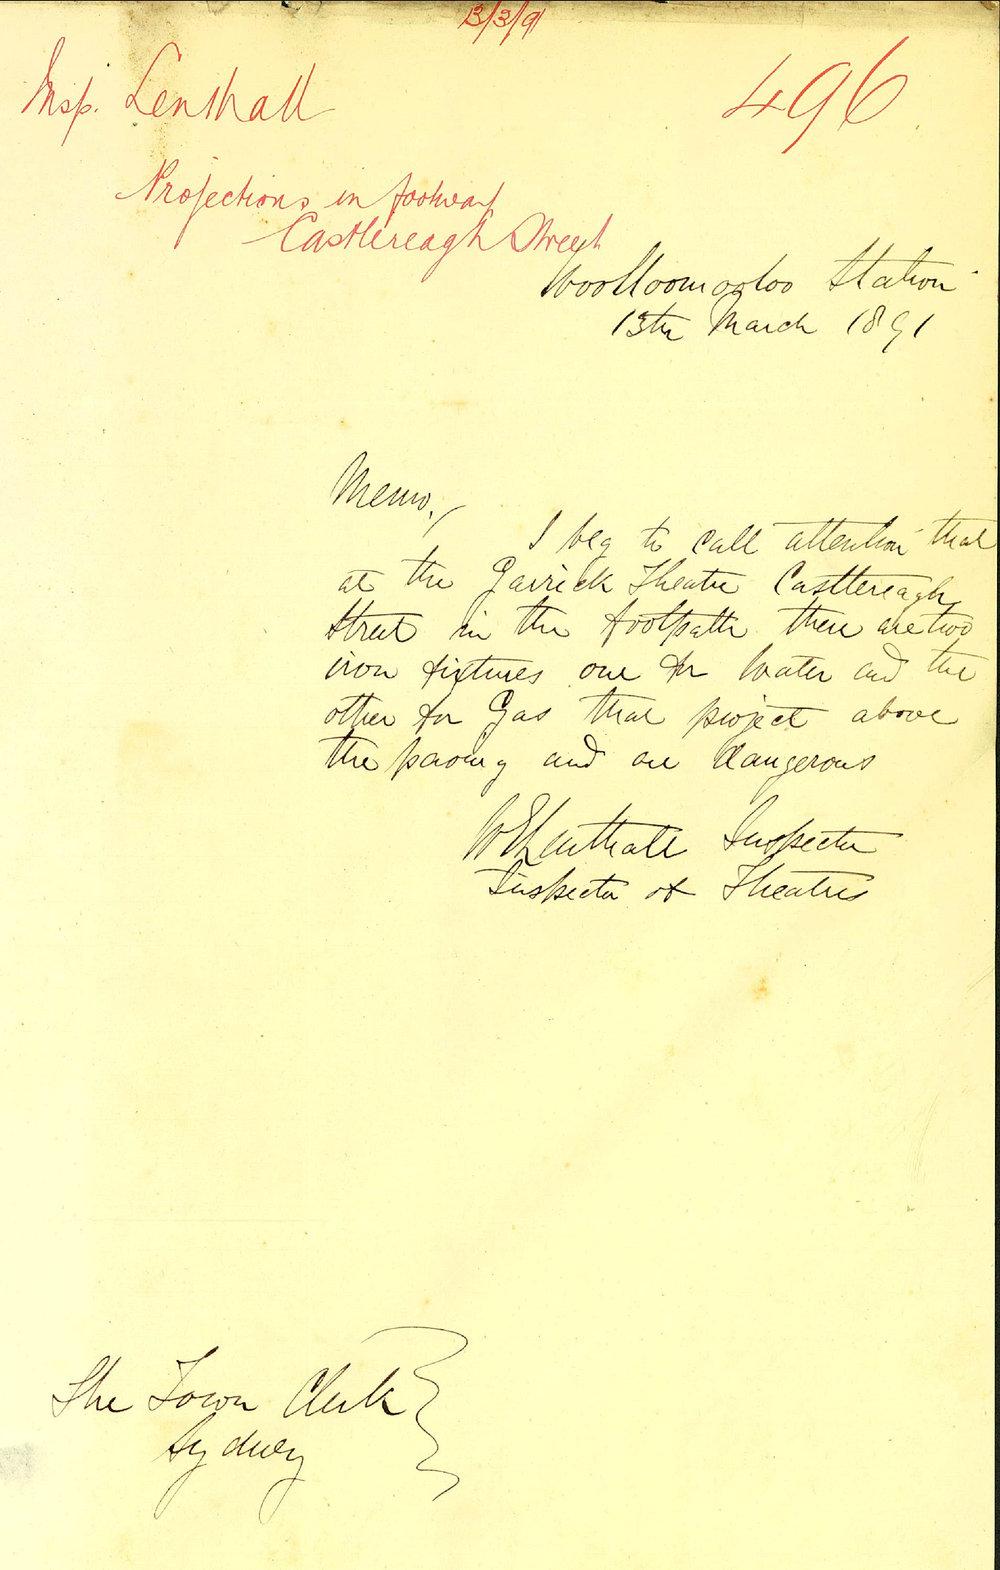 13/3/91
Insp. Lenthall
496
Projections in footway
Castlereagh Street
Woolloomooloo Station
13th March 1891
Memo./
I beg to call attention that
at the Garrick Theatre Castlereagh
Street in the footpath there are two
iron fixtures one for water and the
other for Gas that project above
the paving and are dangerous
W E Lenthall Inspector
Inspector of Theatres
The Town Clerk
Sydney